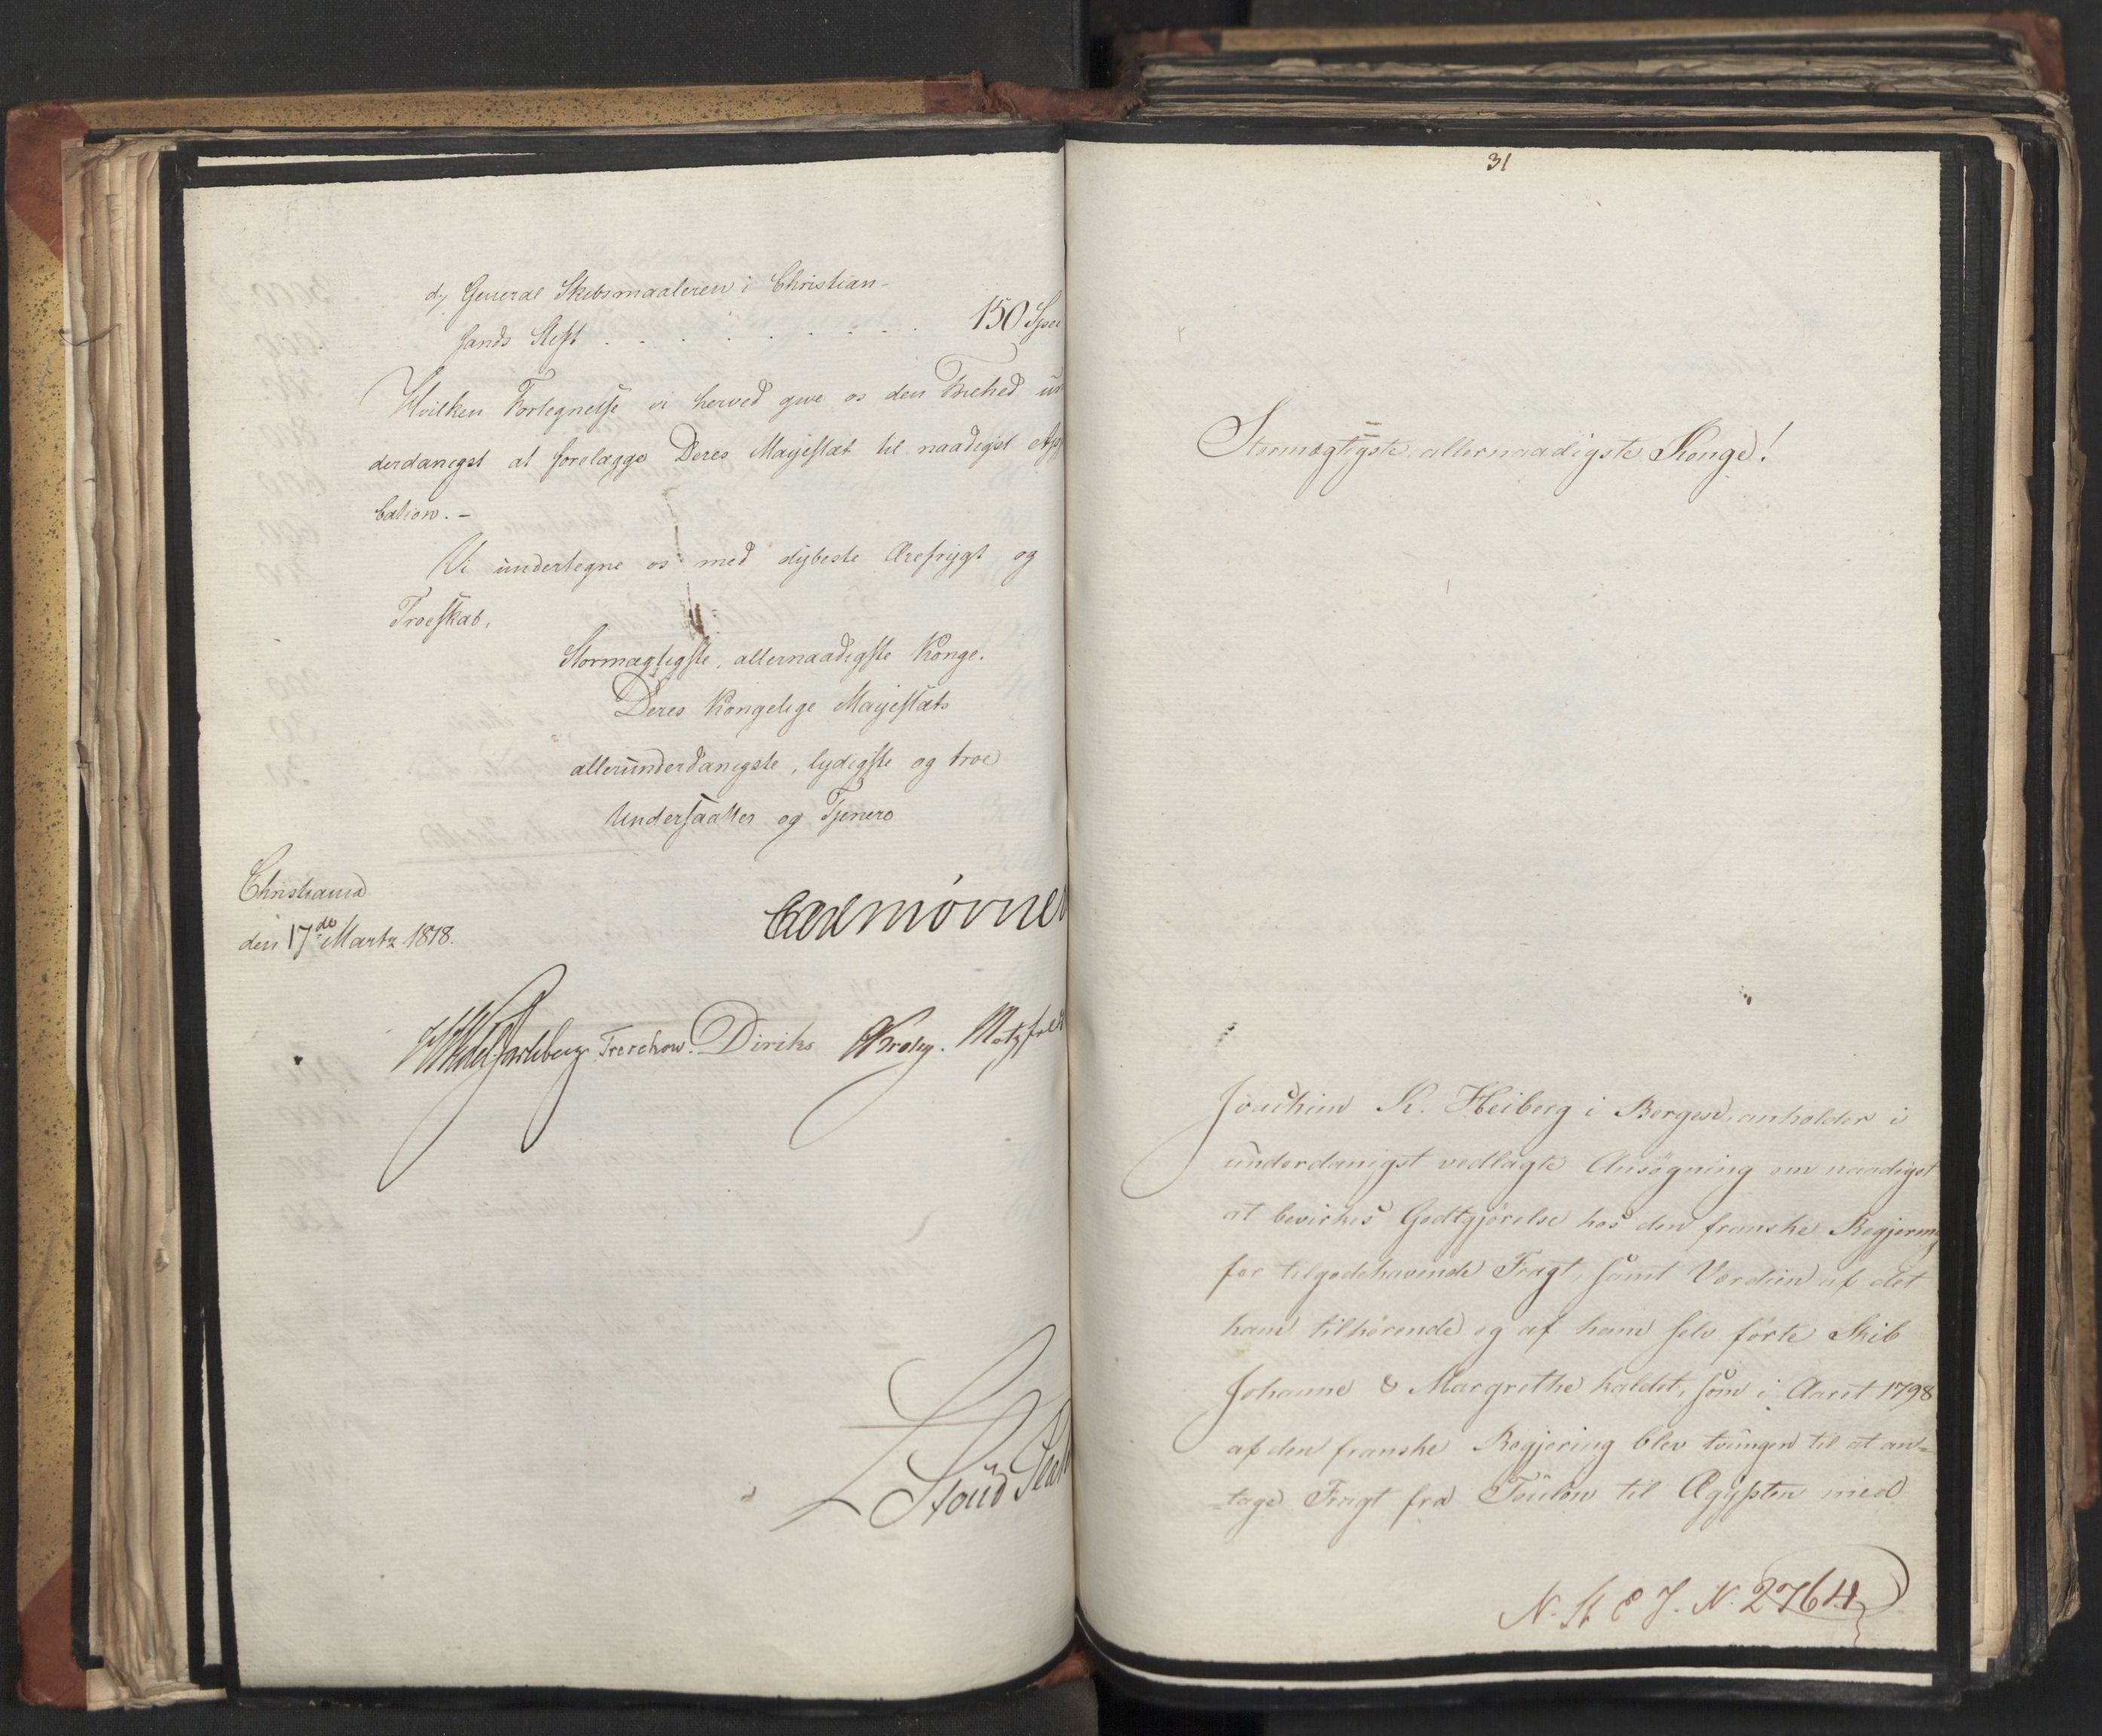 d, General Skibsmaaleren i Christian-
sands Stift . . . . . . . . 150 Spec
Hvilken Fortegnelse vi herved give os den Friehed un
derdanigst at forelægge Deres Majestæt til naadigst App
bation. -
Vi undertegne os med dybeste Ærefrygt og
Troeskab,
Stormægtigste, allernaadigste Konge.
Deres Kongelige Majestæts
allerunderdanigste, lydigste og troe
Undersaatter og Tjenere
Christiania
den 17de Martz 1818.
C A d Mörner
H Wedel Jarlsberg Treschow. Diriks Krohg. Motzfeldt
31
Stormægtigste, allernaadigste Konge!
Joachim K. Heiberg i Bergen, anholder i
underdanigst vedlagte Ansøgning om naadigst
at bevirkes Godtgjørelse hos den franske Regjering
for tilgodehavende Fragt, samt Værdien af det
ham tilhørende og af ham selv førte Skib
Johanne & Margrethe kaldet, som i Aaret 1798
af den franske Regjering blev tvungen til at an=
=tage Fragt fra Toulon til Ægypten med
N. St E J. N. 2764